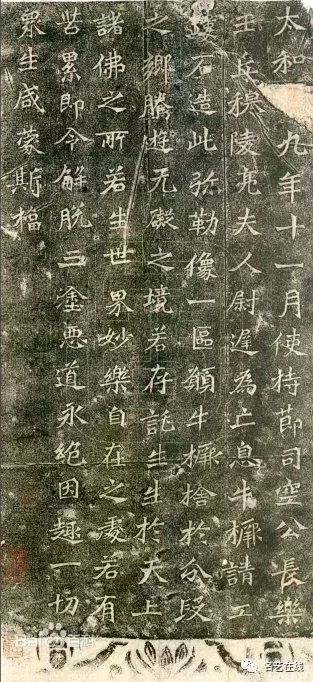 太和 九年十一月使持節司空公長樂
王丘穆陵亮夫人尉遲為亡息牛橛請工
鏤石造此弥勒像一區願牛橛捨於分段
之鄉騰遊无礙之境若存託生生於天上
諸佛之所若生世界妙樂自在之處若有
苦累即令解脫三塗惡道永絕因趣一切
眾生咸蒙斯福
Bai百科
名艺在线